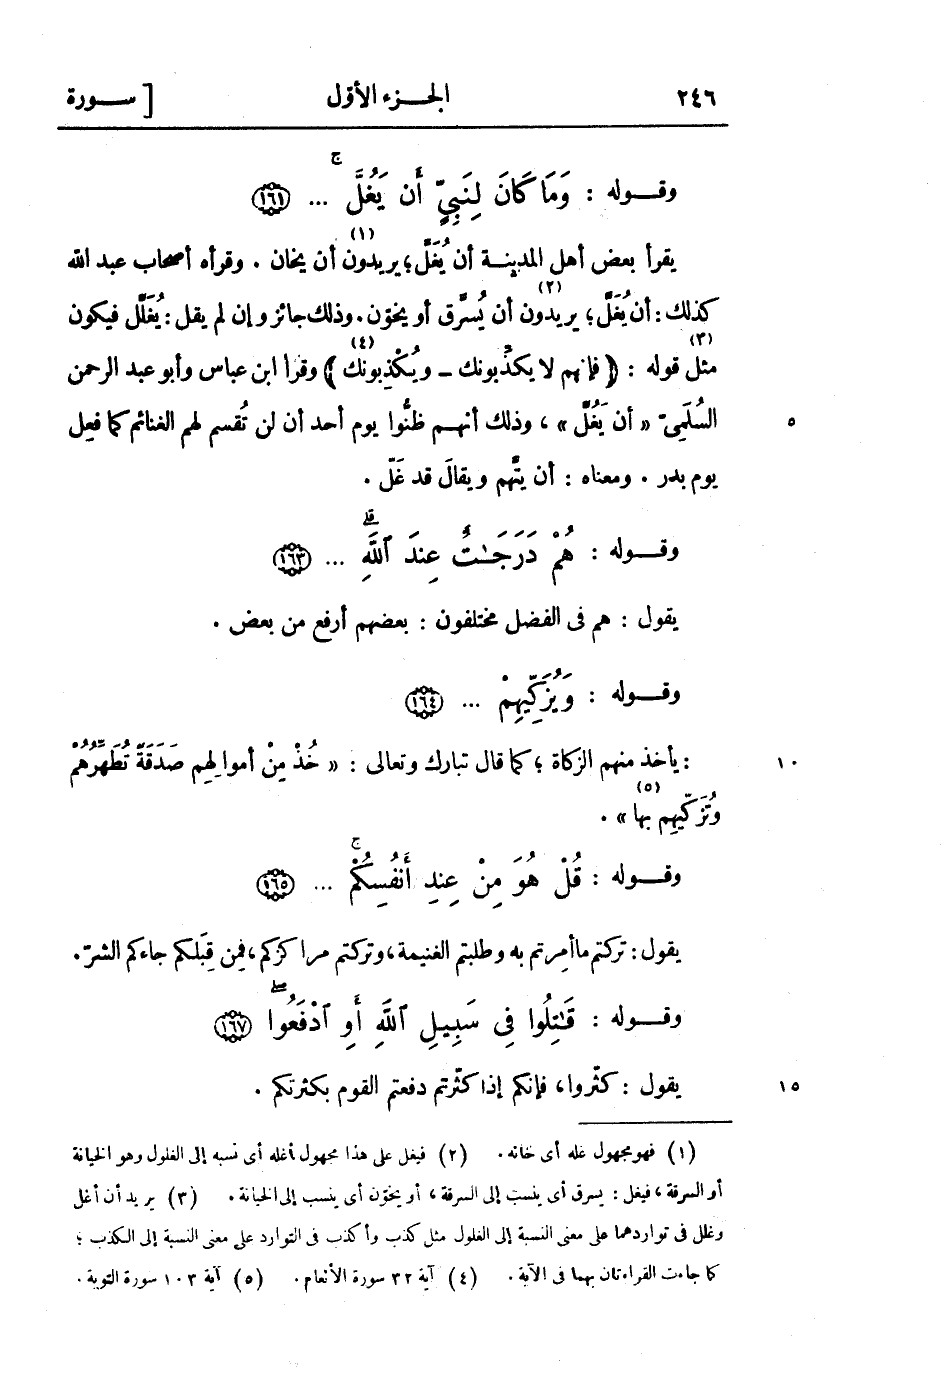 ٢٤٦ الجـزء الأوّل [ ســورة
وقـــوله : وَمَا كَانَ لِنَبِىٍّ أَن يَغُلَّ ۚ ... ١٦١
يقرأ بعض أهل المدينــة أن يُغَلَّ؛ يريدون (١) أن يخان . وقرأه أصحاب عبد الله
كذلك : أن يُغَلَّ؛ يريدون (٢) أن يُسرَّق أو يخوّن. وذلك جائز وإن لم يقل : يُغَلَّل فيكون
مثل (٣) قوله : ﴿ فإنهم لا يكذّبونك ــ ويُكْذِبونك (٤) ﴾ وقرأ ابن عباس وأبو عبد الرحمن
٥ السُلَمِىّ « أن يَغُلّ » ، وذلك أنهــم ظنُّوا يوم أحد أن لن تُقسم لهم الغنائم كما فعِل
يوم بدر . ومعناه : أن يتَّهم ويقالَ قد غَلّ .
وقـــوله : هُمْ دَرَجَـٰتٌ عِندَ ٱللَّهِ ۗ ... ١٦٣
يقول : هم فى الفضل مختلفون : بعضهم أرفع من بعض .
وقـــوله : وَيُزَكِّيهِمْ ... ١٦٤
١٠ : يأخذ منهم الزكاة ؛ كما قال تبارك وتعالى : « خُذْ مِنْ أموالِهم صَدَقَةً تُطَهِّرُهُمْ
وتُزَكِّيهِم بها (٥) » .
وقـــوله : قُلْ هُوَ مِنْ عِندِ أَنفُسِكُمْ ۚ ... ١٦٥
يقول : تركتم ما أمِرتم به وطلبتم الغنيمة، وتركتم مراكزكم، فمِن قِبَلكم جاءكم الشرّ.
وقـــوله : قَـٰتِلُوا فِى سَبِيلِ ٱللَّهِ أَوِ ٱدْفَعُوا ۖ ١٦٧
١٥ يقول : كثّروا، فإنكم إذا كثّرتم دفعتم القوم بكثرتكم .
(١) فهو مجهول غله أى خانه. (٢) فيغل على هذا مجهول أغله أى نسبه إلى الغلول وهو الخيانة
أو السرقة ، فيغل : يسرق أى ينسب إلى السرقة ، أو يخوّن أى ينسب إلى الخيانة . (٣) يريد أن أغل
وغلل فى تواردهما على معنى النسبة إلى الغلول مثل كذب وأكذب فى التوارد على معنى النسبة إلى الكذب ؛
كما جاءت القراءتان بهما فى الآية . (٤) آية ٣٢ سورة الأنعام . (٥) آية ١٠٣ سورة التوبة .